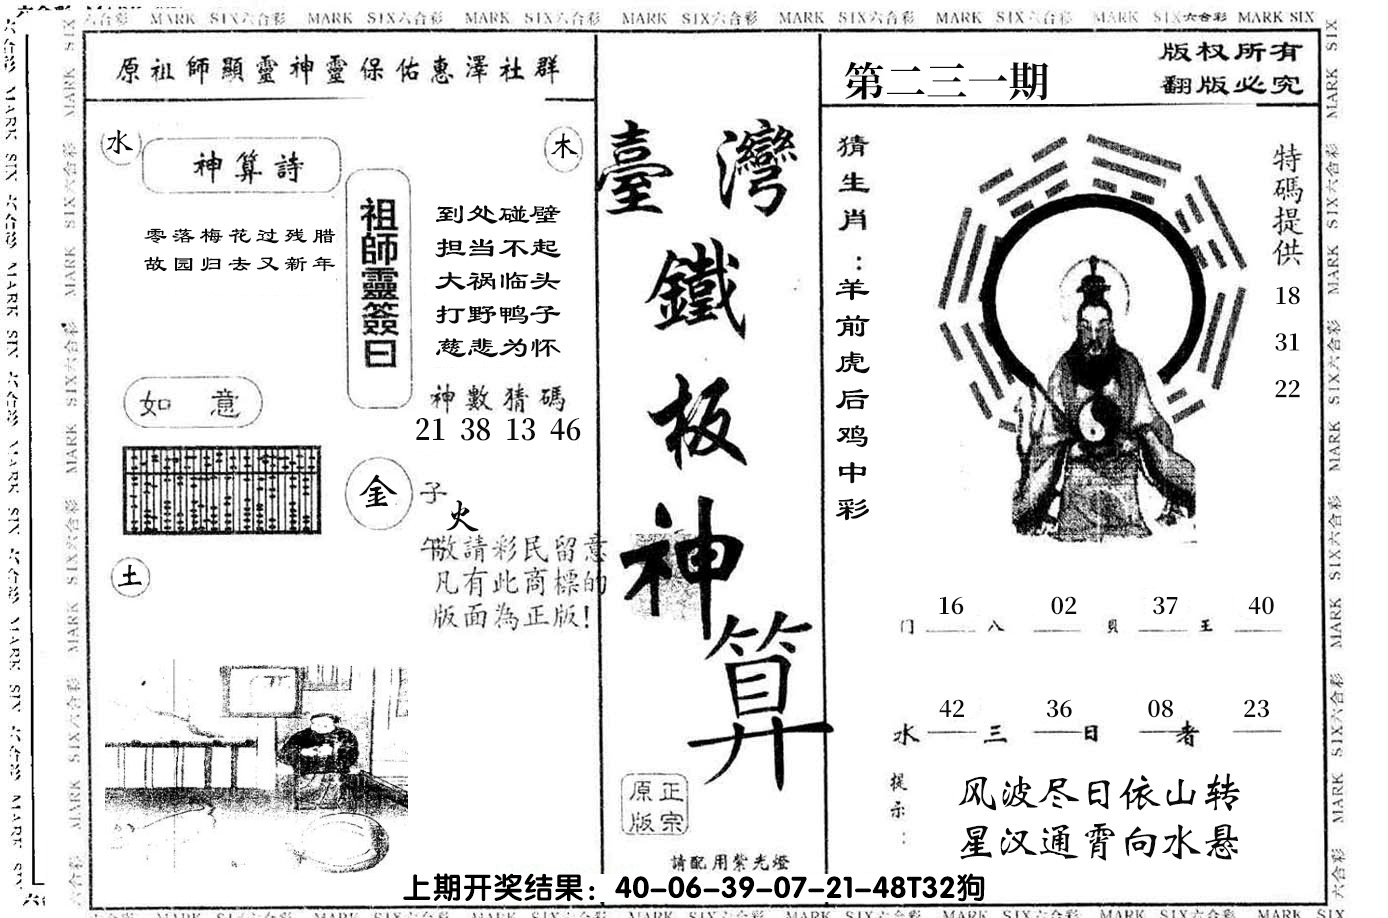 MARK SIX六合彩 MARK SIX六合彩 MARK SIX六合彩 MARK SIX六合彩 MARK SIX六合彩 MARK SIX六合彩 MARK SIX六合彩 MARK SIX
原祖師顯靈神靈保佑惠澤社群
水
神算詩
木
零落梅花过残腊
故园归去又新年
祖師靈簽曰
到处碰壁
担当不起
大祸临头
打野鸭子
慈悲为怀
神數猜碼
21 38 13 46
如 意
金
子
火
午
敬請彩民留意
凡有此商標的
版面為正版!
土
臺灣
鐵
板
神
算
正宗
原版
請配用紫光燈
第二三一期
版权所有
翻版必究
猜生肖:羊前虎后鸡中彩
特碼提供
18
31
22
16 02 37 40
门 八 貝 王
42 36 08 23
水 三 日 者
提示:
风波尽日依山转
星汉通霄向水悬
上期开奖结果：40-06-39-07-21-48T32狗